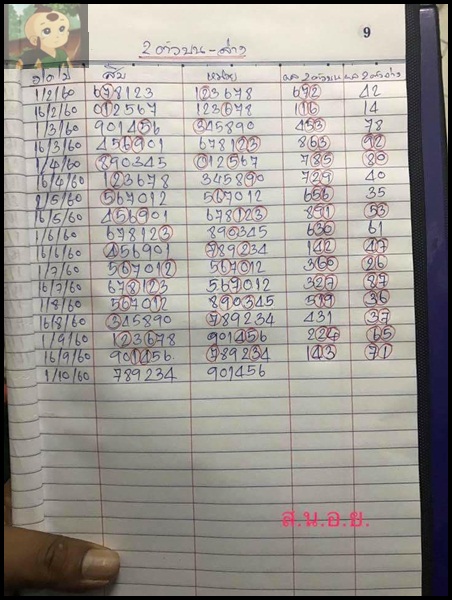 9
2 ตัวบน - ล่าง
ว/ด/ป สิบ หน่วย ผล 2 ตัวบน ผล 2 ตัวล่าง
1/2/60 678123 123678 692 42
16/2/60 012567 123678 116 14
1/3/60 901456 345890 453 78
16/3/60 456901 678123 863 92
1/4/60 890345 012567 785 80
16/4/60 123678 345890 729 40
2/5/60 567012 567012 656 35
16/5/60 456901 678123 891 53
1/6/60 678123 890345 630 61
16/6/60 456901 789234 142 47
1/7/60 567012 567012 360 26
16/7/60 678123 567012 327 87
1/8/60 567012 890345 519 36
16/8/60 345890 789234 431 37
1/9/60 123678 901456 224 65
16/9/60 901456 789234 143 71
1/10/60 789234 901456
ส.น.อ.ย.